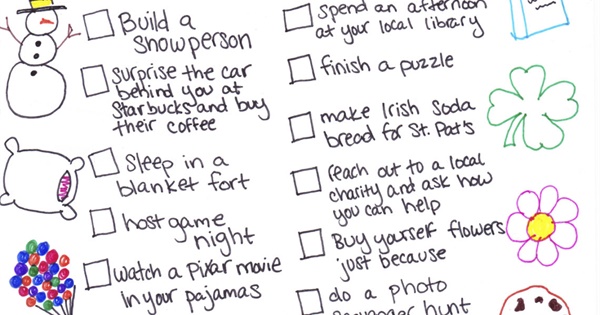 Build a
Snowperson
surprise the car
behind you at
Starbucks and buy
their coffee
Sleep in a
blanket fort
host game
night
watch a Pixar movie
in your pajamas
spend an afternoon
at your local library
finish a puzzle
make Irish Soda
bread for St. Pat's
reach out to a local
charity and ask how
you can help
Buy yourself flowers
just because
do a photo
hunt